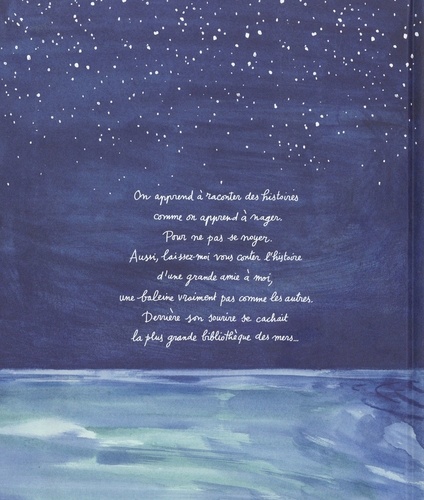 On apprend à raconter des histoires
comme on apprend à nager.
Pour ne pas se noyer.
Aussi, laissez-moi vous conter l'histoire
d'une grande amie à moi,
une baleine vraiment pas comme les autres.
Derrière son sourire se cachait
la plus grande bibliothèque des mers...